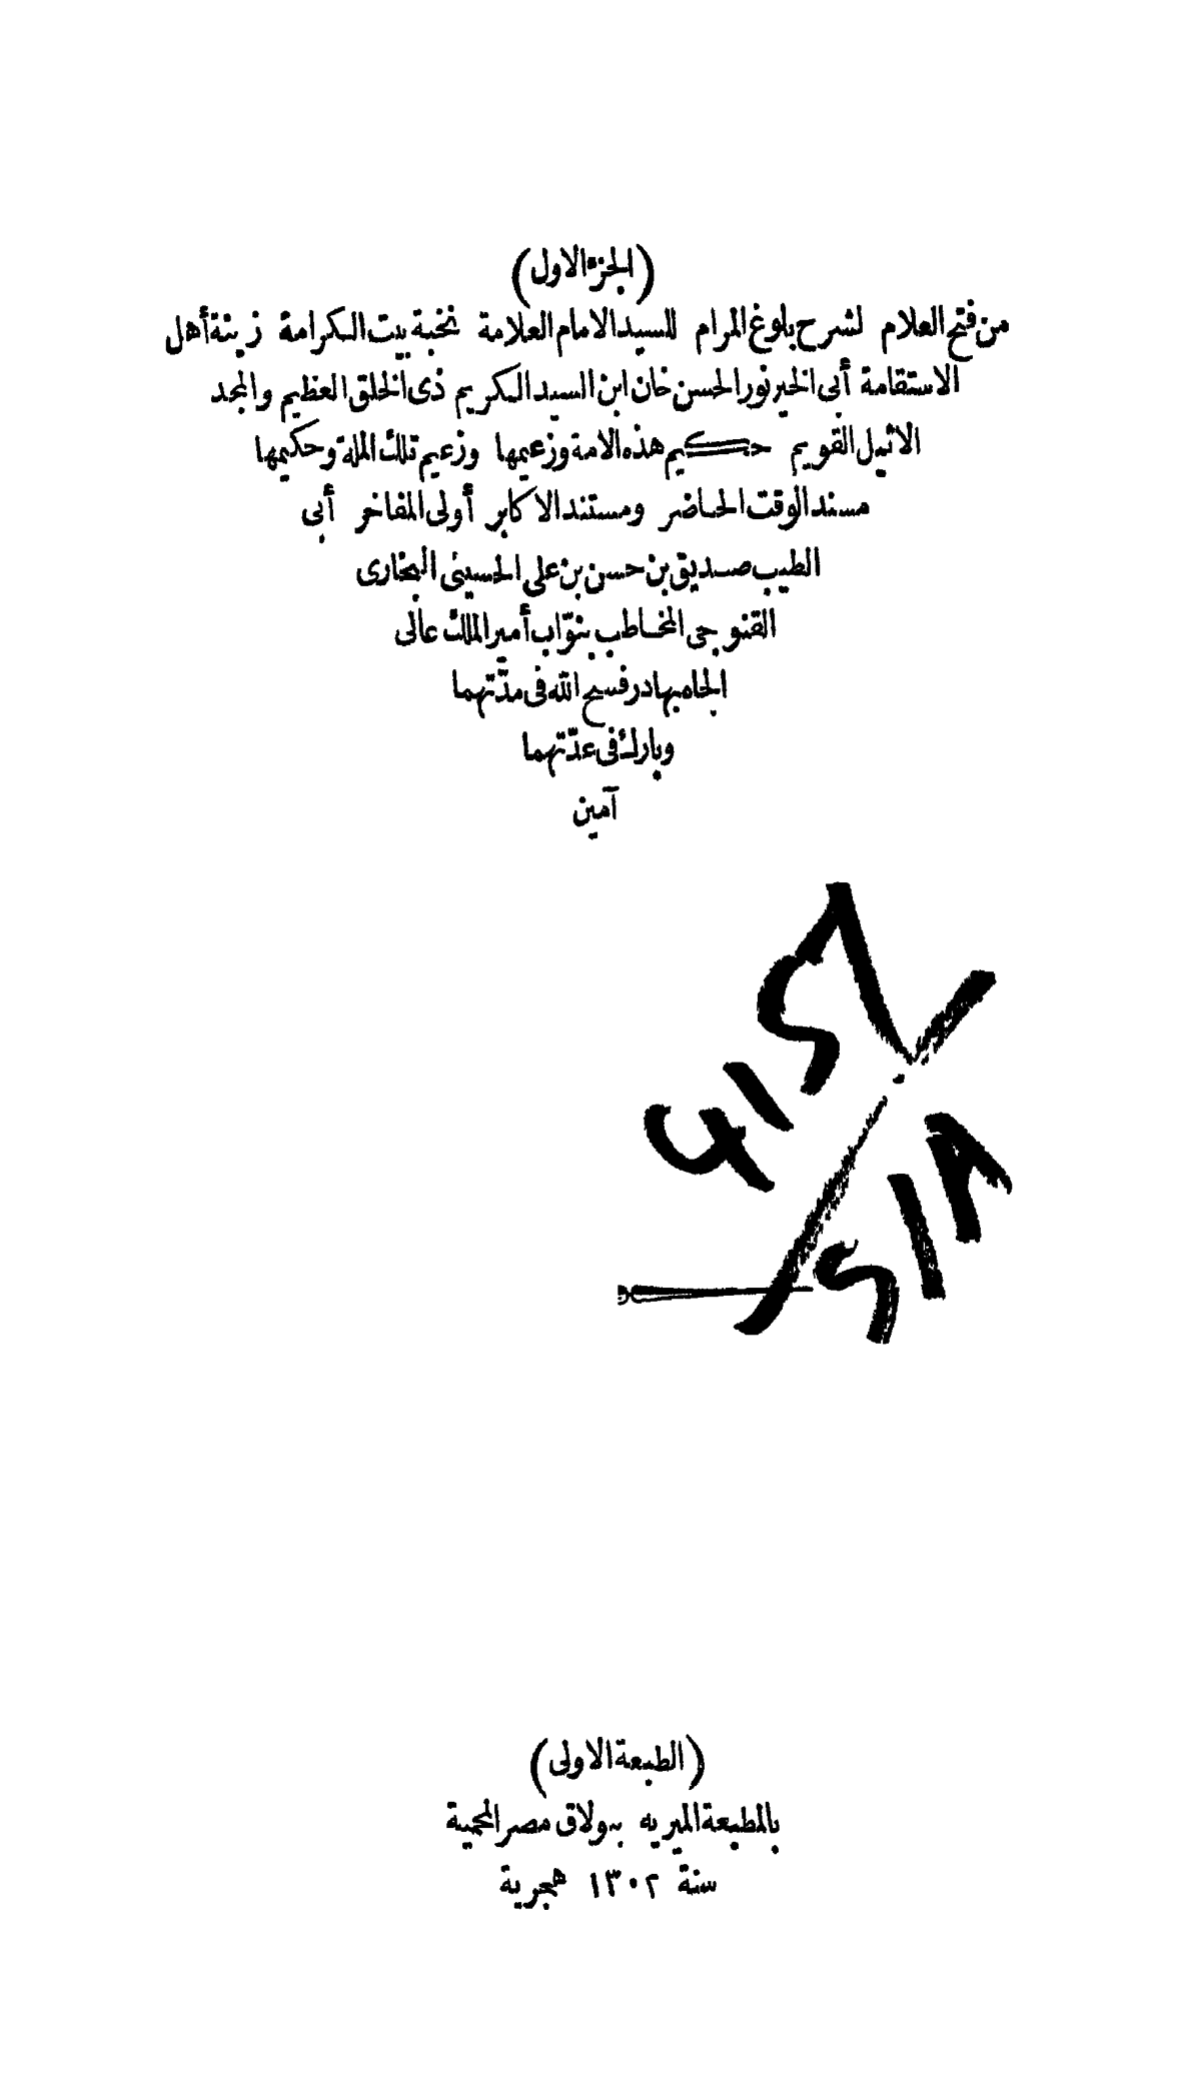 (الجزء الاول)
من فتح العلام لشرح بلوغ المرام للسيد الامام العلامة نخبة بيت الكرامة زينة أهل
الاستقامة أبى الخير نور الحسن خان ابن السيد الكريم ذى الخلق العظيم والمجد
الاثيل القويم حكيم هذه الامة وزعيمها وزعيم تلك الملة وحكيمها
مسند الوقت الحاضر ومستند الاكابر أولى المفاخر أبى
الطيب صديق بن حسن بن على الحسينى البخارى
القنوجى المخاطب بنوّاب أمير الملك عالى
الجاه بهادر فسح الله فى مدّتهما
وبارك فى عدّتهما
آمين
(الطبعة الاولى)
بالمطبعة الميريه ببولاق مصر المحمية
سنة ١٣٠٢ هجرية